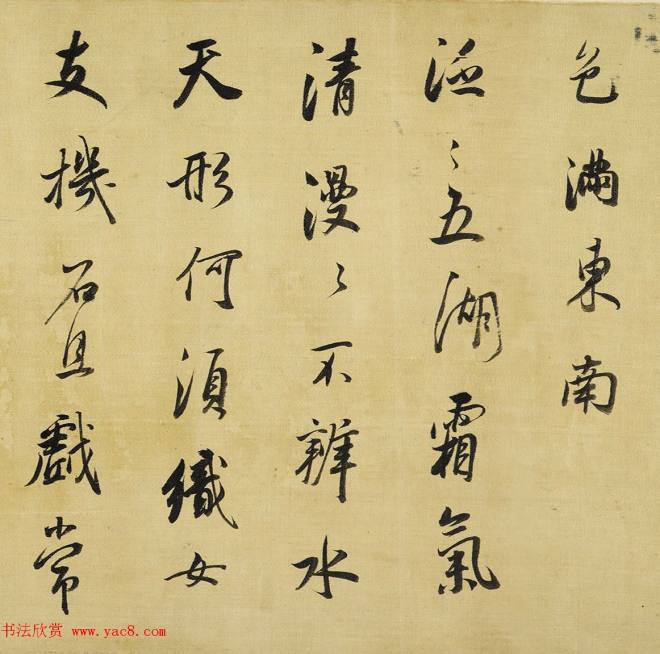 色滿東南
泛〻五湖霜氣
清漫〻不辨水
天形何須織女
支機石且戲常
书法欣赏 www.yac8.com